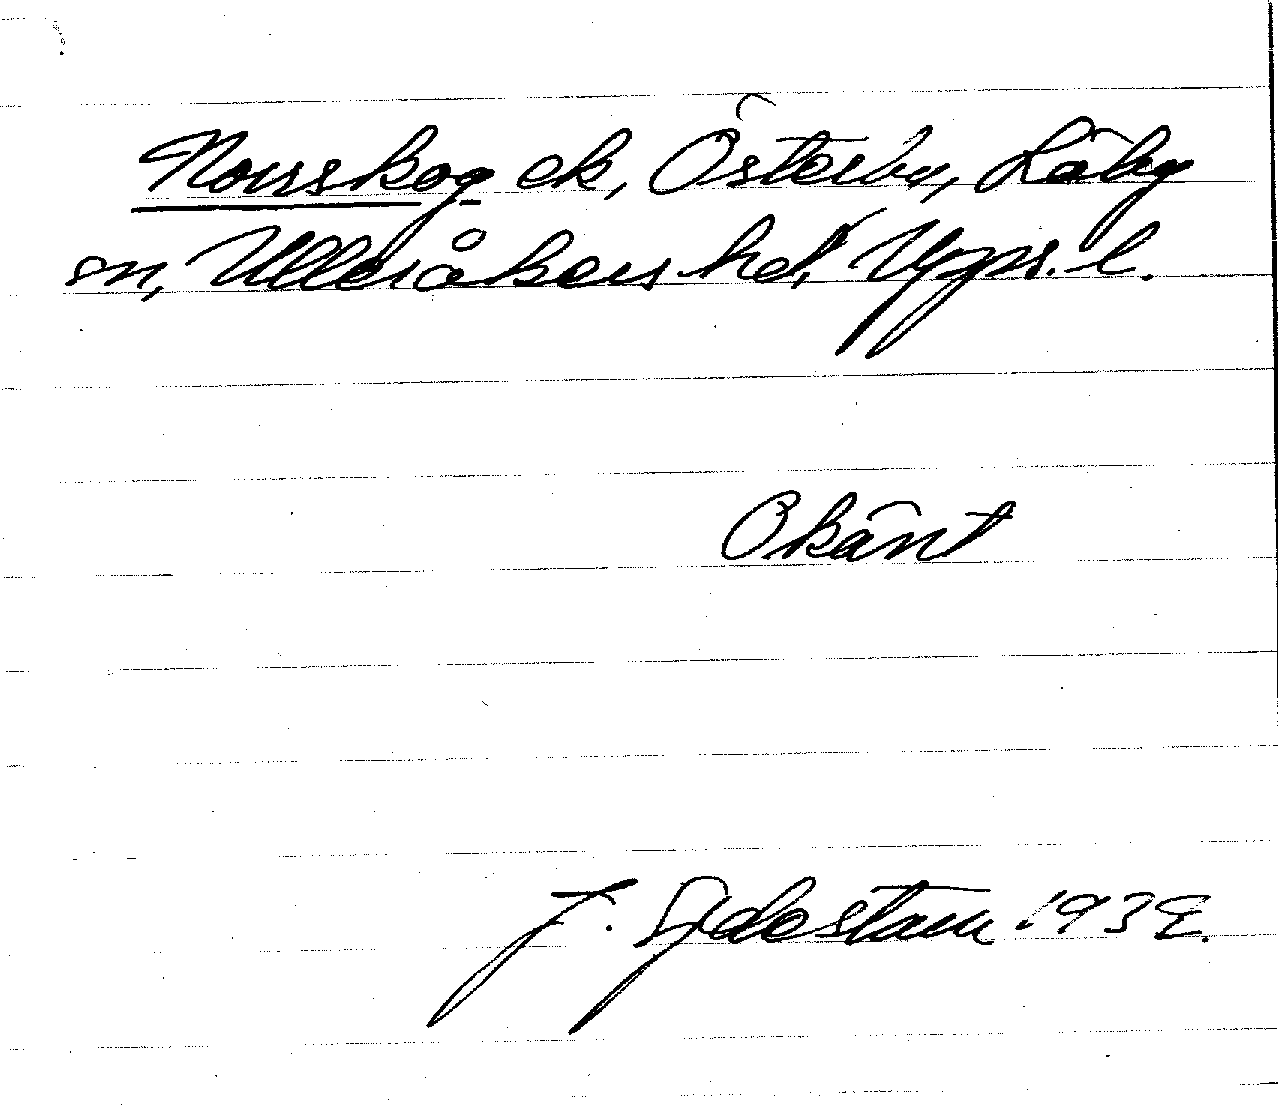 Norrskog ek, Österby, Läby
sn, Ulleråkers hd, Upps. l.
Okänt
J. Sjdestam 1932.